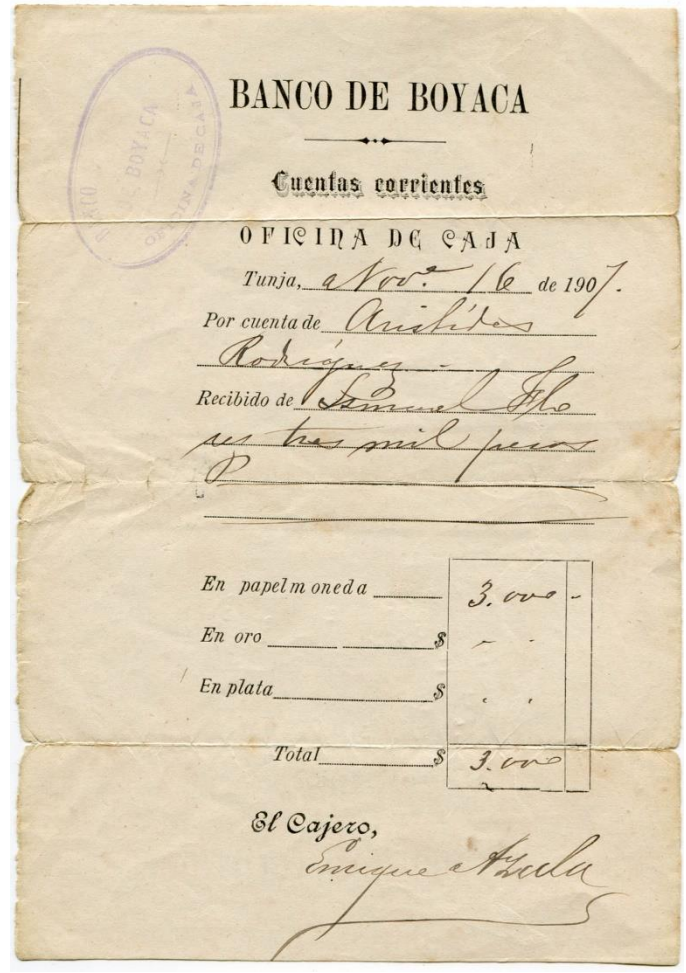 BANCO DE BOYACA
BANCO
BOYACA
OFICINA DE CAJA
Cuentas corrientes
OFICINA DE CAJA
Tunja, a Nov.e 16 de 1907.
Por cuenta de Aristídes
Rodríguez
Recibido de Ismael Flo
res tres mil pesos
P
En papel moneda 3.000 -
En oro $ " "
En plata $ " "
Total $ 3.000
El Cajero,
Enrique Azula